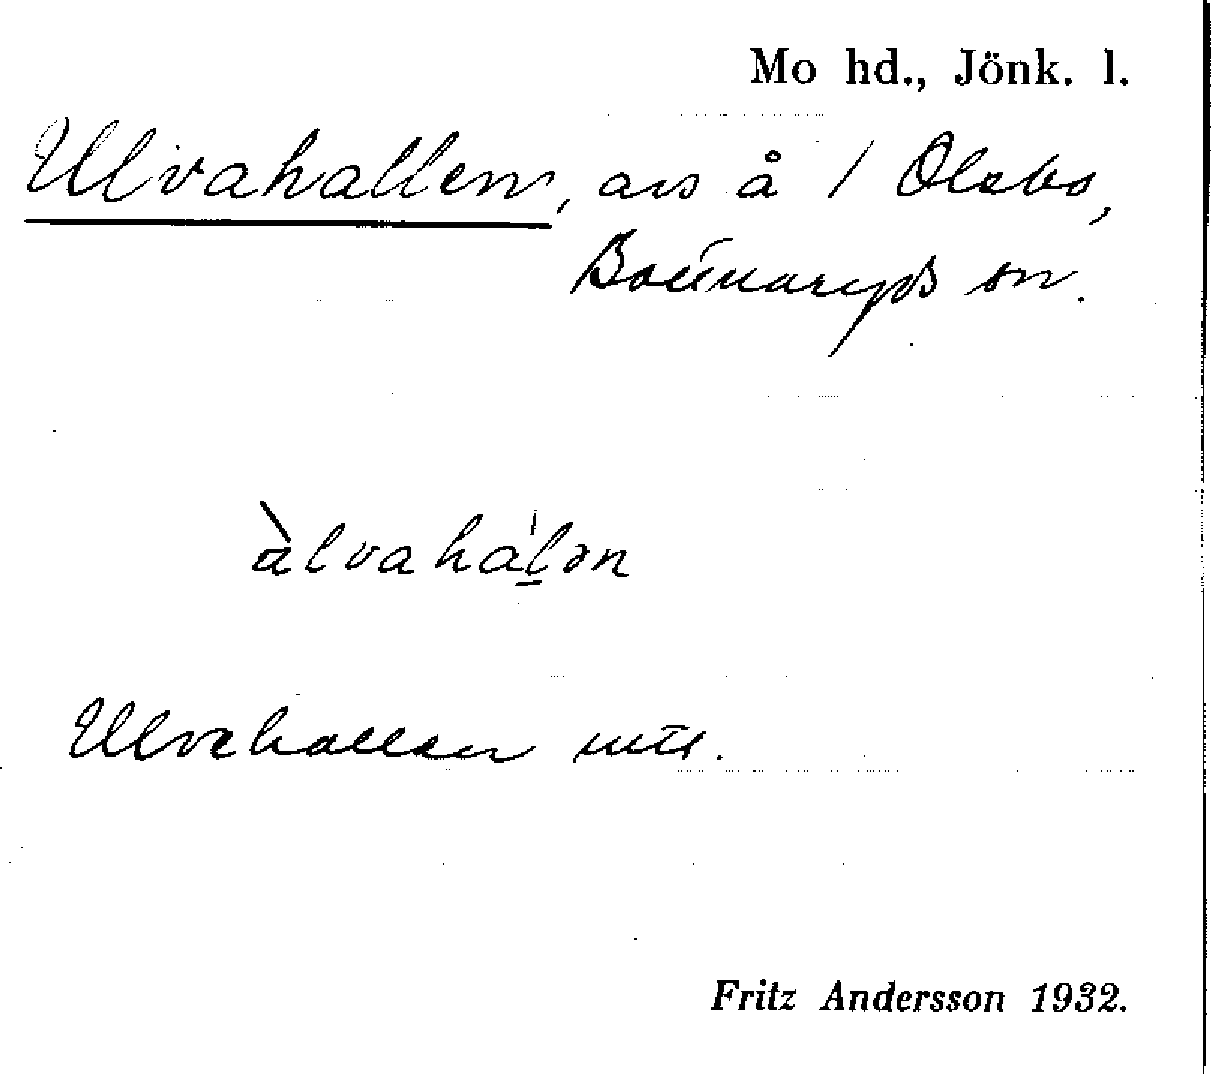 Mo hd., Jönk. l.
Ulvahallen, avs å 1 Olsbo,
Bottnaryds sn.
àlvaháḻən
Ulvahallen
Fritz Andersson 1932.